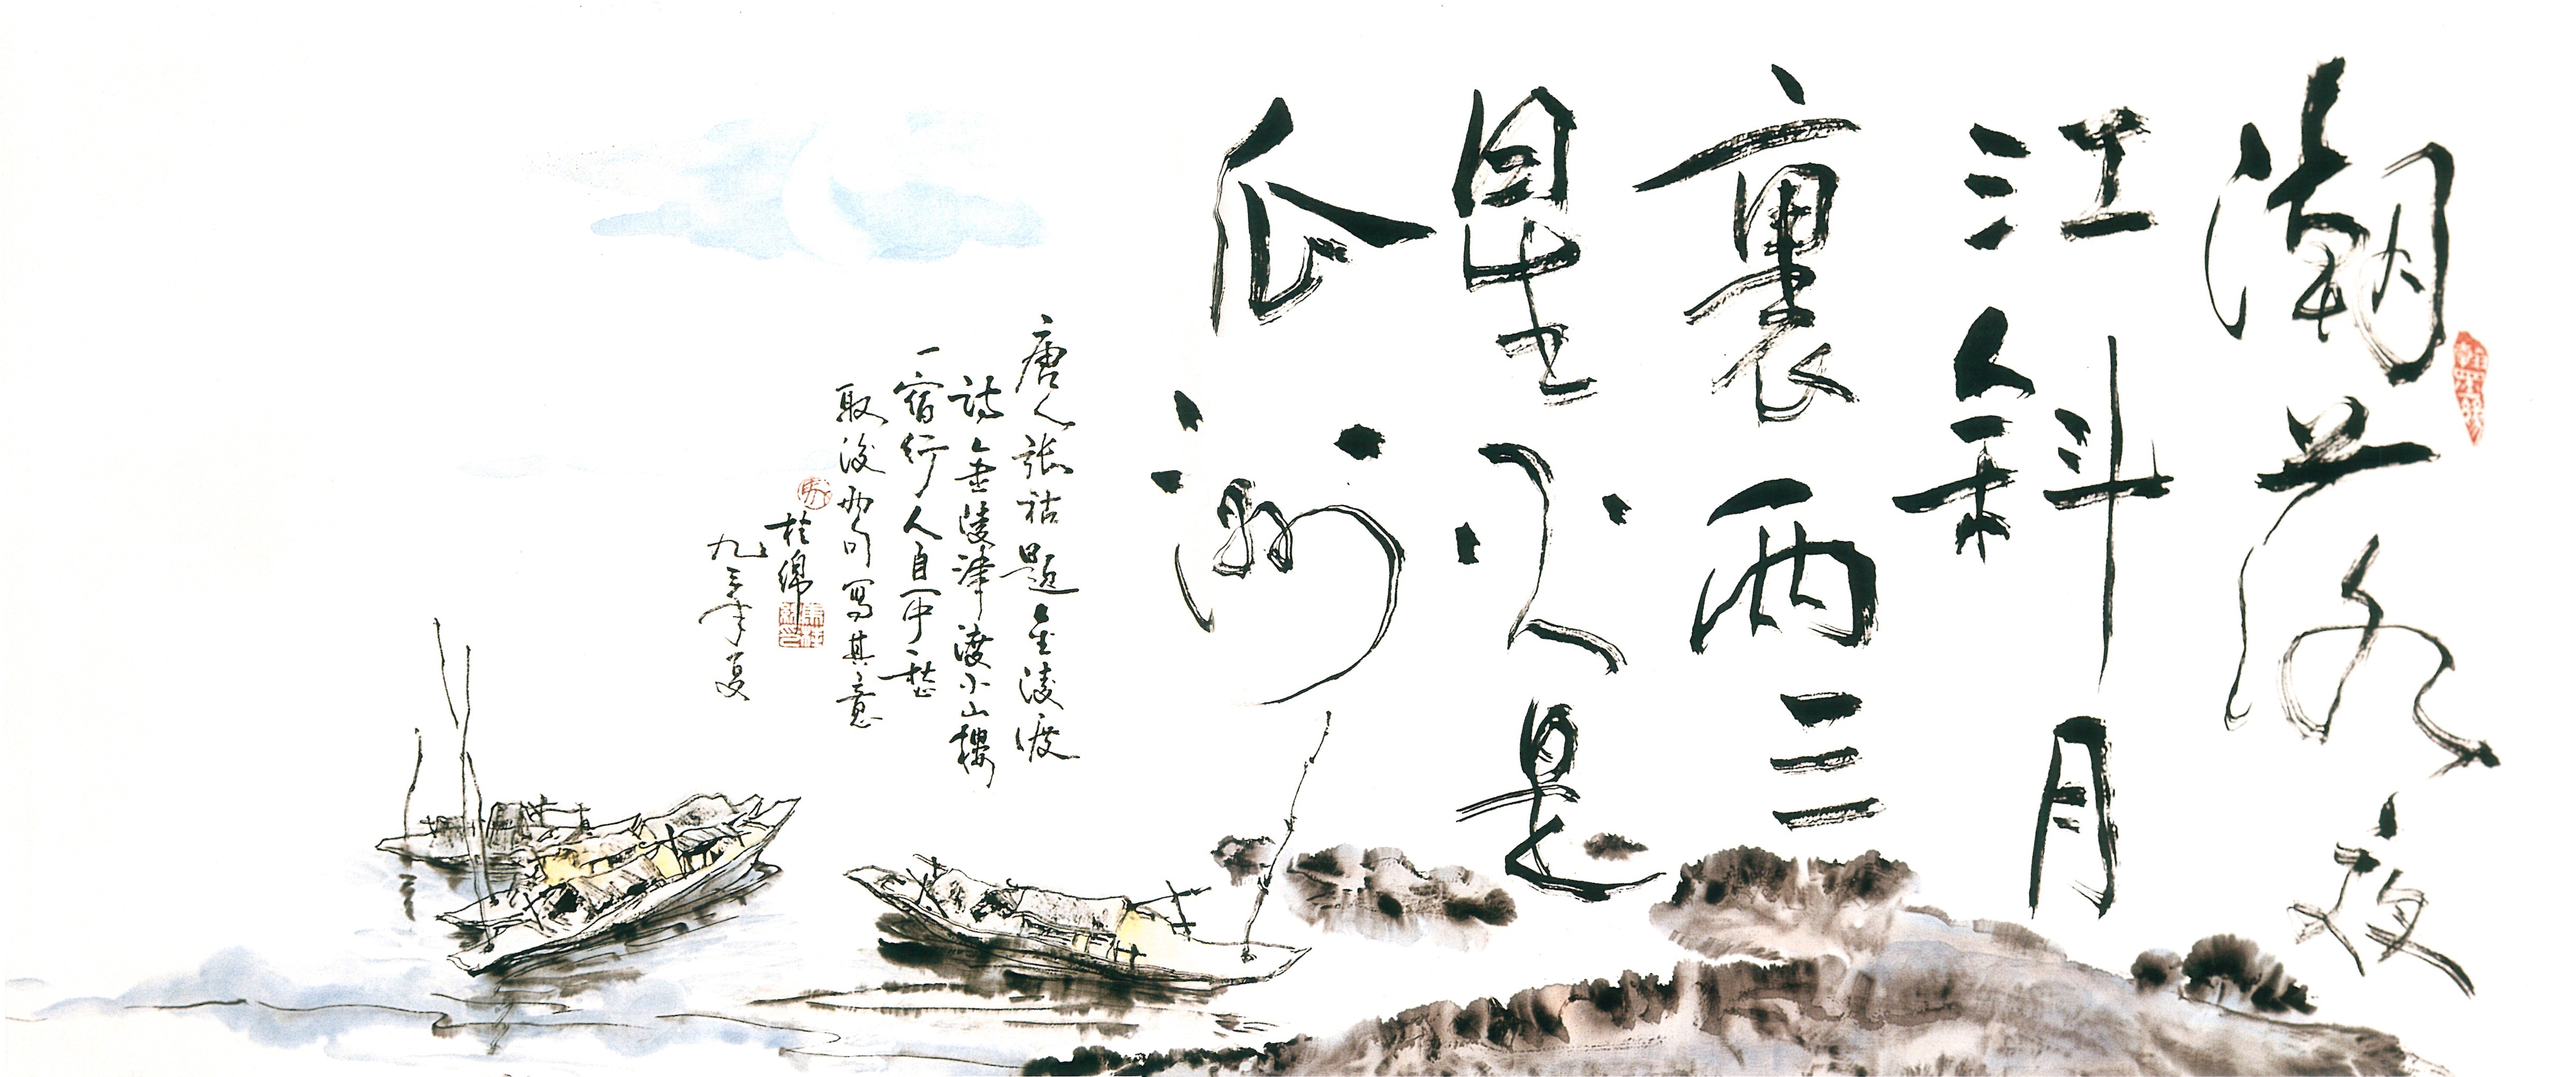 潮落夜
江斜月
裏兩三
星火是
瓜洲
唐人張祜題金陵渡
詩金陵津渡小山樓
一宿行人自可愁
取後兩句寫其意
桂綿
九三年夏